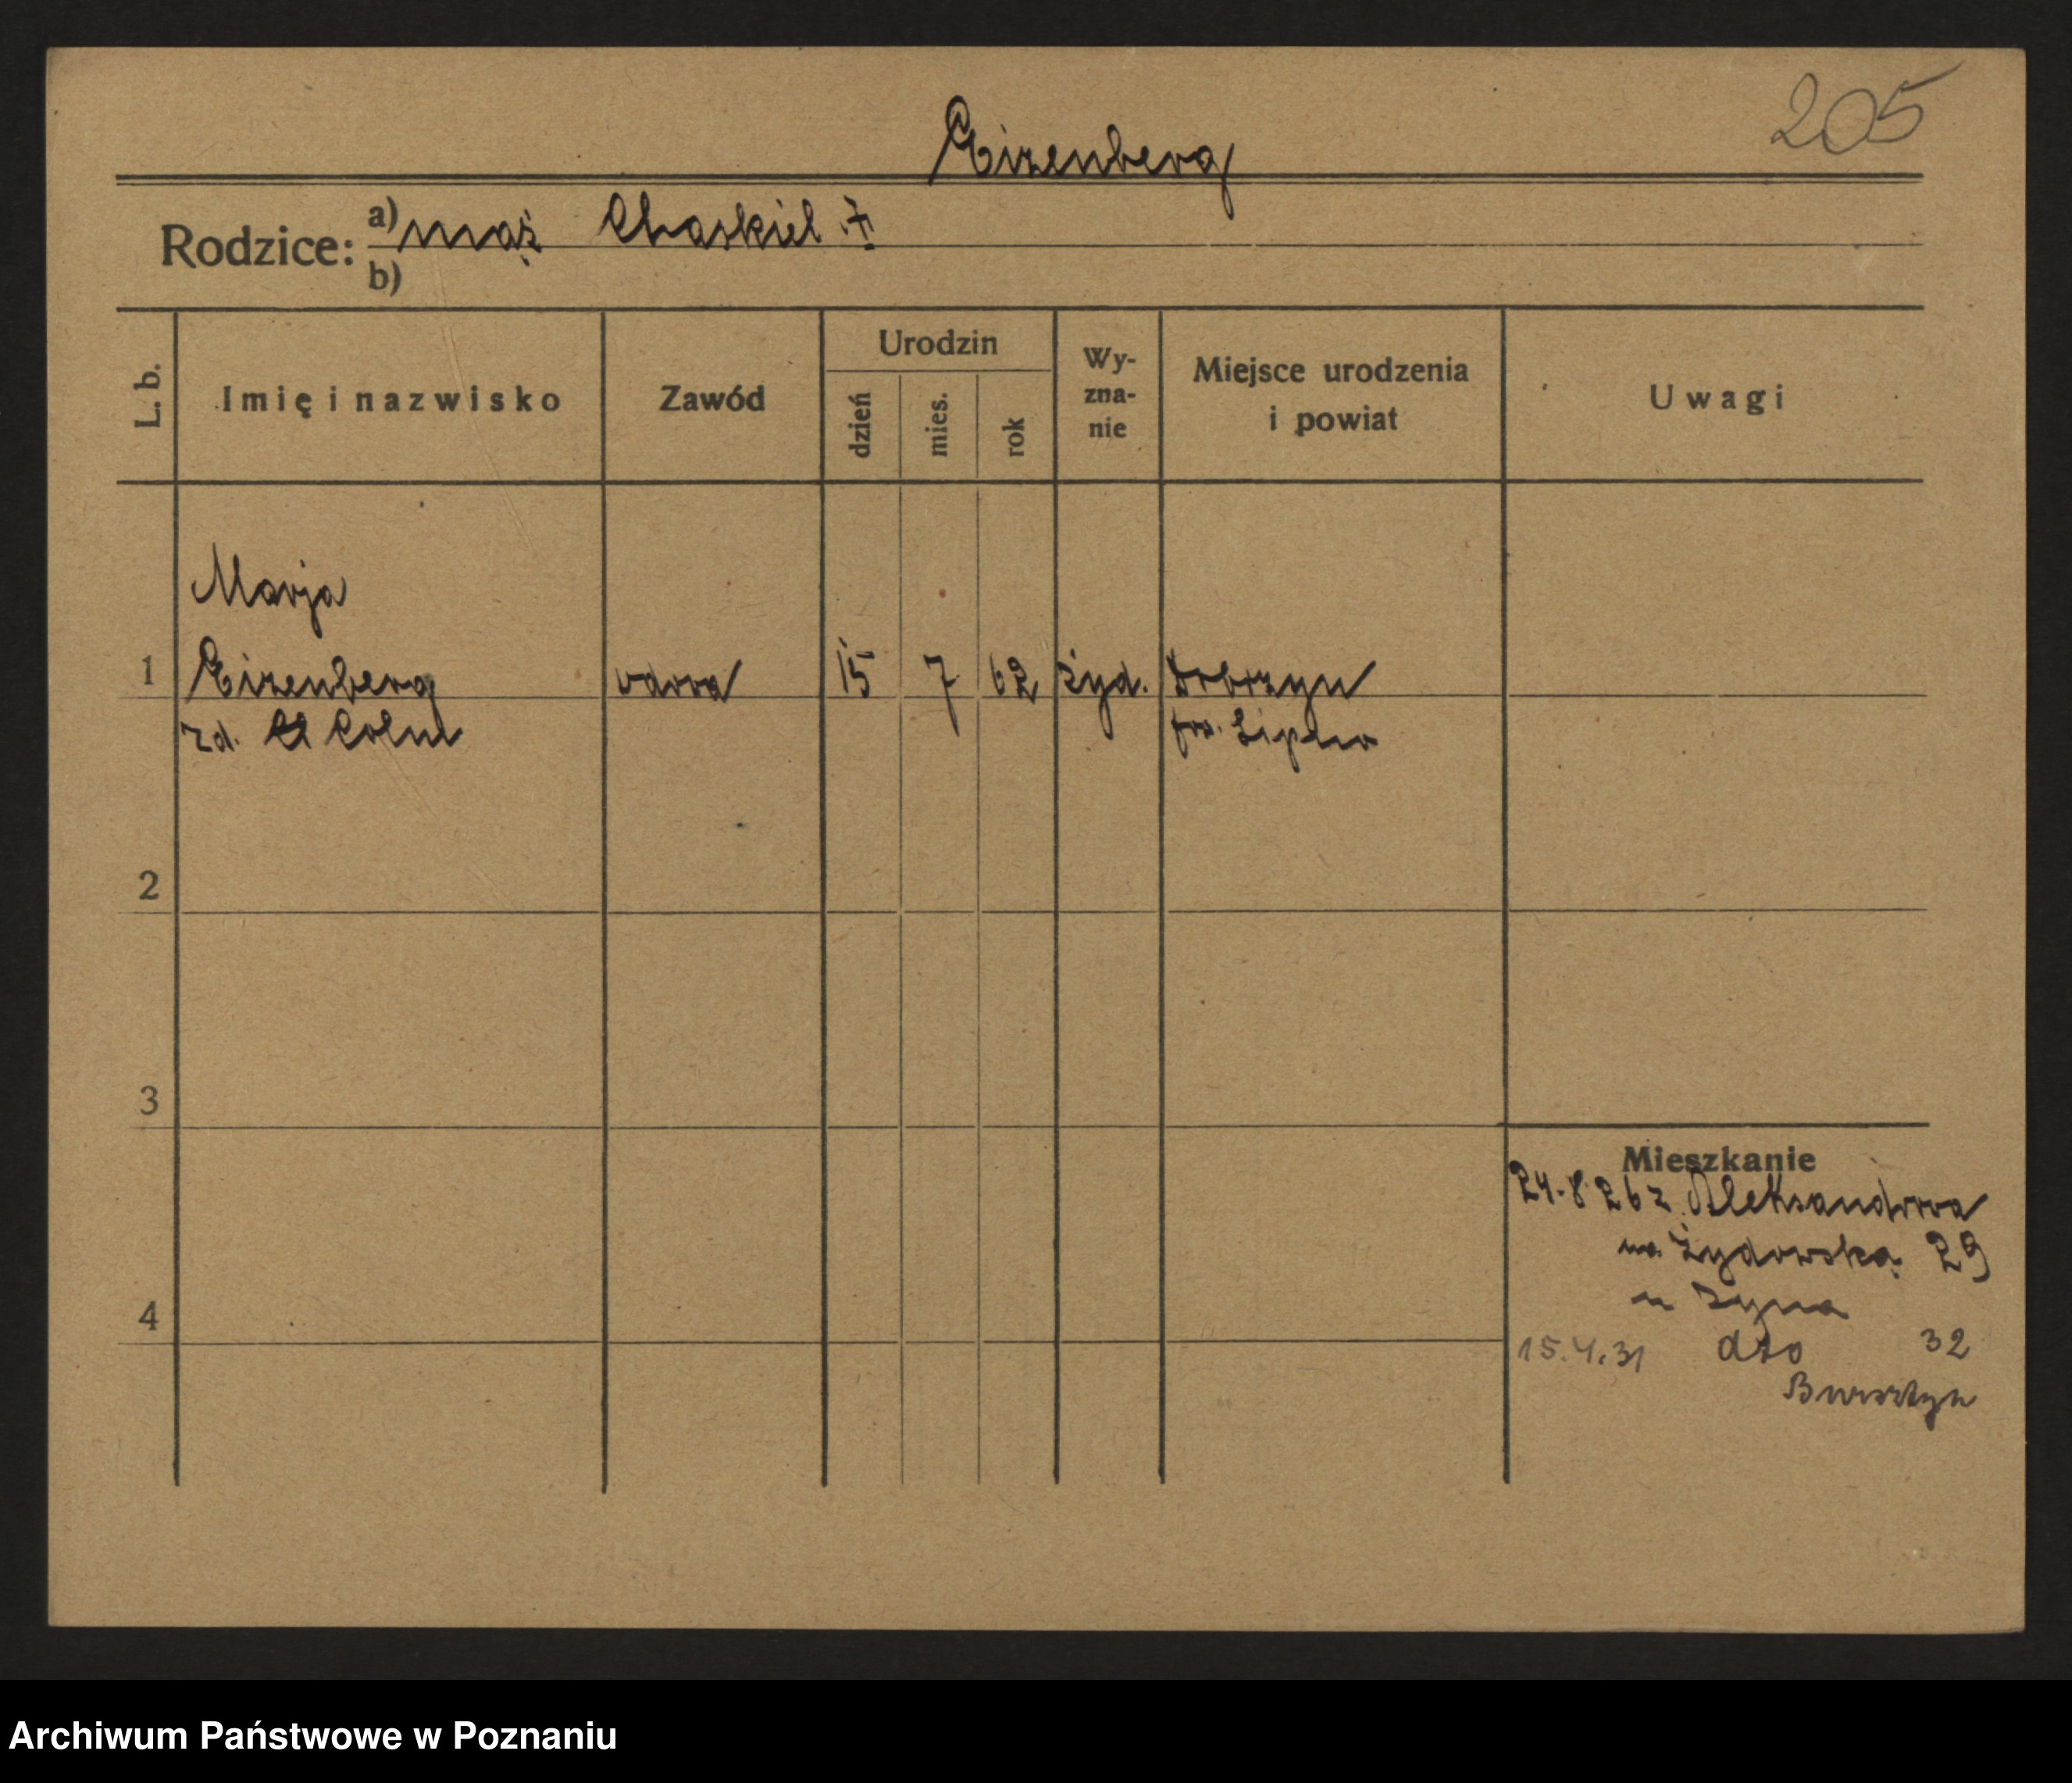 205
Eizenberg
Rodzice: a) mąż Chaskiel ‡
b)
L. b.
Imię i nazwisko
Zawód
Urodzin
dzień
mies.
rok
Wy-
zna-
nie
Miejsce urodzenia
i powiat
Uwagi
Marja
1 Eizenberg wdowa 15 7 62 żyd. Dobrzyn
zd. Cohn pow. Lipno
2
3
Mieszkanie
24.8 26 z Aleksandrowa
na Żydowską 29
u Syna
4
15.4.31 dto 32
Bursztyn
Archiwum Państwowe w Poznaniu